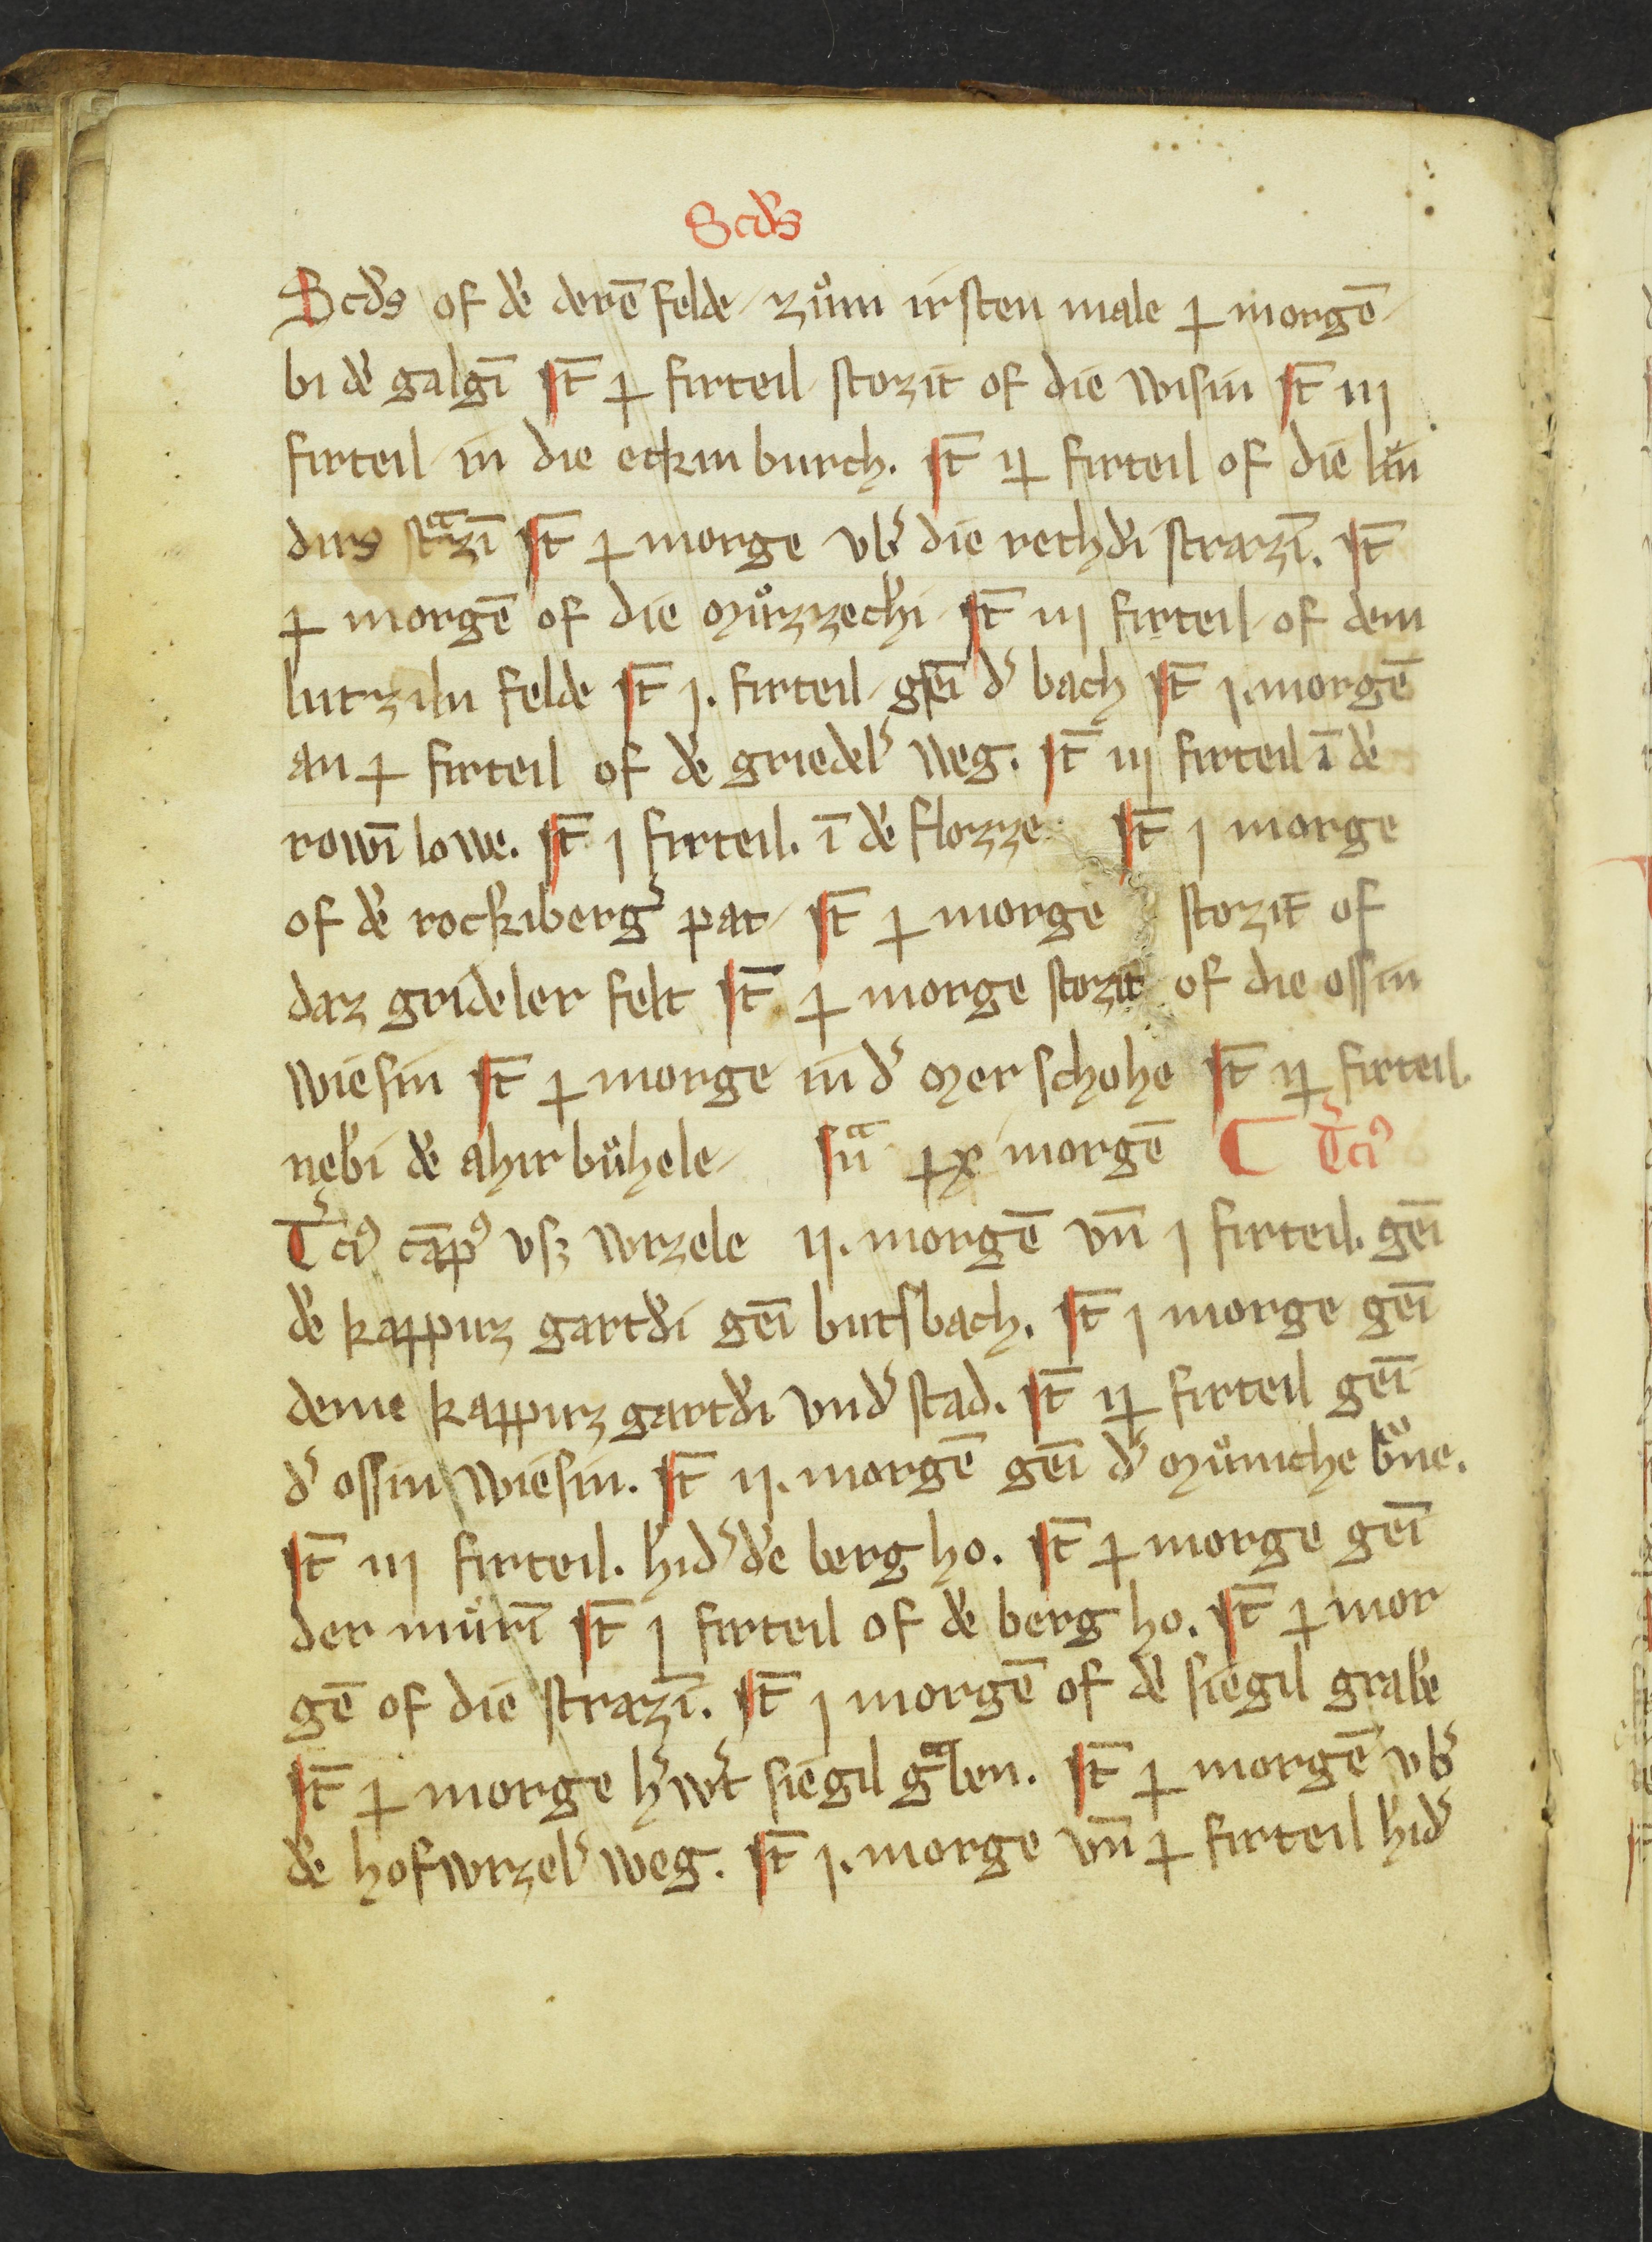 Scds
Scds of dē derē felde zům irsten male ɟ morgē
bi dē galgī Jt̄ ɟ firteil stozit of die wisin Jt̄ iij
firteil in die eckin burch. Jt̄ iɟ firteil of die lin
dirs stͣzī Jt̄ ɟ morge vb̾ die rechd̾i strazī. Jt̄
ɟ morgē of die můrzzechī Jt̄ iij firteil of dem
lutziln felde Jt̄ j. firteil geī d̾ bach Jt̄ j. morgē
an ɟ firteil of dē griedel̾ weg. Jt̄ iij firteil ī dē
rowī lowe. Jt̄ j firteil. ī dē flozze Jt̄ j morge
of dē rockīberg̾ pat Jt̄ ɟ morge stozit of
daz grideler felt Jt̄ ɟ morge stozit of die ossin
wiesin Jt̄ ɟ morge in d̾ mer schohe Jt̄ iɟ firteil.
nebī dē ahir bůhele Sūͣ ɟx morgē ⸿ T̾ciꝰ
T̾ciꝰ cāpꝰ vsz wrzele ij. morgē vn̄ j firteil. geī
dē kappuz gartd̾i geī butsbach. Jt̄ j morge geī
deme kappuz gartd̾i vnd̾ stad. Jt̄ iɟ firteil geī
d̾ ossin wiesin. Jt̄ ij. morgē geī d̾ můniche bͦne.
Jt̄ iij firteil. hīd̾ dē berg ho. Jt̄ ɟ morge geī
der můrī Jt̄ j firteil of dē berg ho. Jt̄ ɟ mor
gē of die strazī. Jt̄ j morgē of dē siegil grabē
Jt̄ ɟ morge h̾wt̾ siegil gͣben. Jt̄ ɟ morgē vb̾
dē hofwrzel̾ weg. Jt̄ j. morge vn̄ ɟ firteil hīd̾